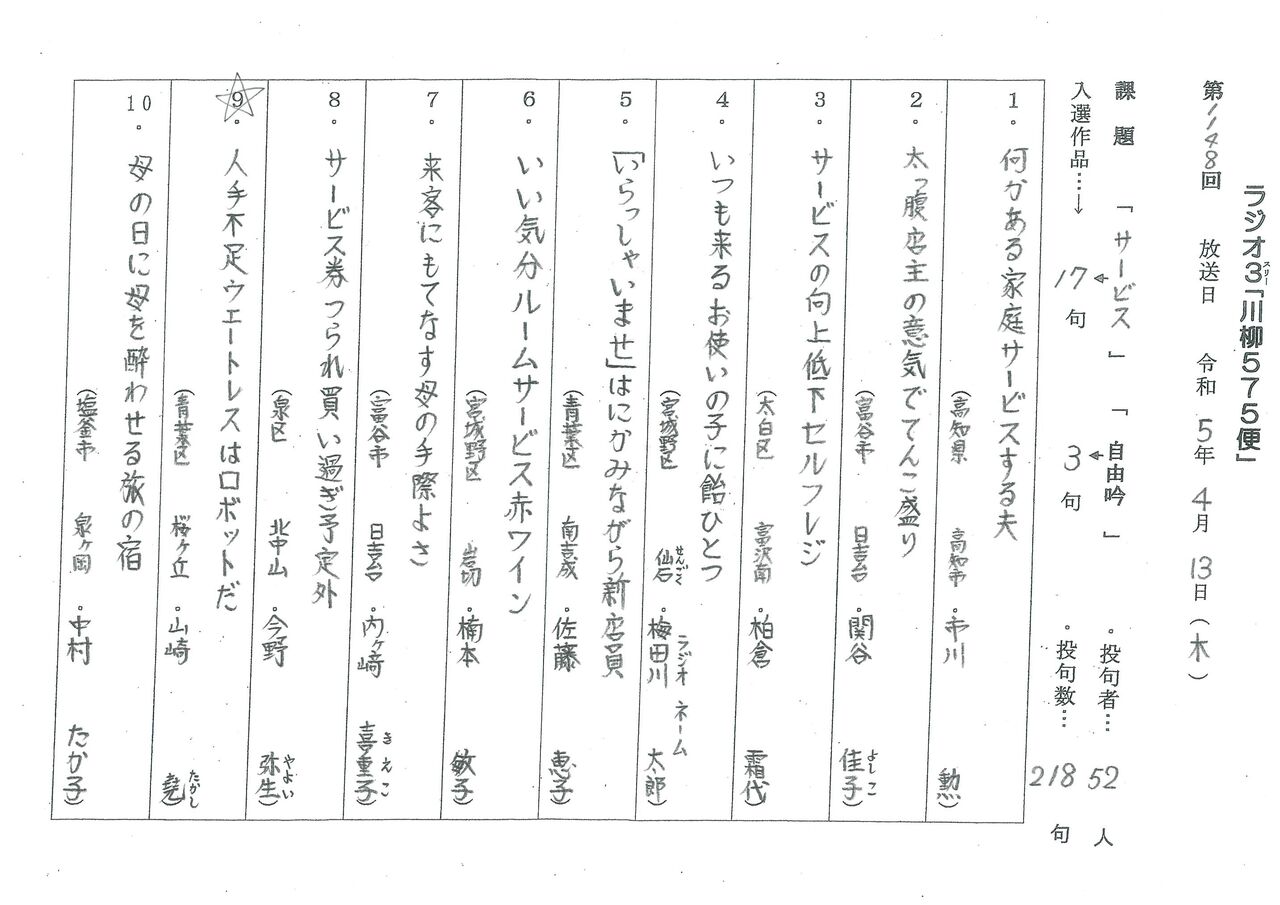 ラジオ3「川柳575便」
スリー
第1148回 放送日 令和5年4月13日(木)
課題 「サービス」 「自由吟」 ・投句者…52人
入選作品…→ 17句 3句 ・投句数…218句
1. 何かある家庭サービスする夫
(高知県 高知市・市川 勲)
2. 太っ腹店主の意気でてんこ盛り
(富谷市 日吉台・関谷 佳子)
よしこ
3. サービスの向上低下セルフレジ
(太白区 富沢南・柏倉 霜代)
4. いつも来るお使いの子に飴ひとつ
(宮城野区 仙石・梅田川 太郎)
せんごく
ラジオネーム
5. 「いらっしゃいませ」はにかみながら新店員
(青葉区 南吉成・佐藤 恵子)
6. いい気分ルームサービス赤ワイン
(宮城野区 岩切・楠本 敏子)
7. 来客にもてなす母の手際よさ
(富谷市 日吉台・内ヶ崎 喜重子)
きえこ
8. サービス券つられ買い過ぎ予定外
(泉区 北中山・今野 弥生)
やよい
9. 人手不足ウェートレスはロボットだ
(青葉区 桜ヶ丘・山崎 堯)
たかし
10. 母の日に母を酔わせる旅の宿
(塩釜市 泉ヶ岡・中村 たか子)